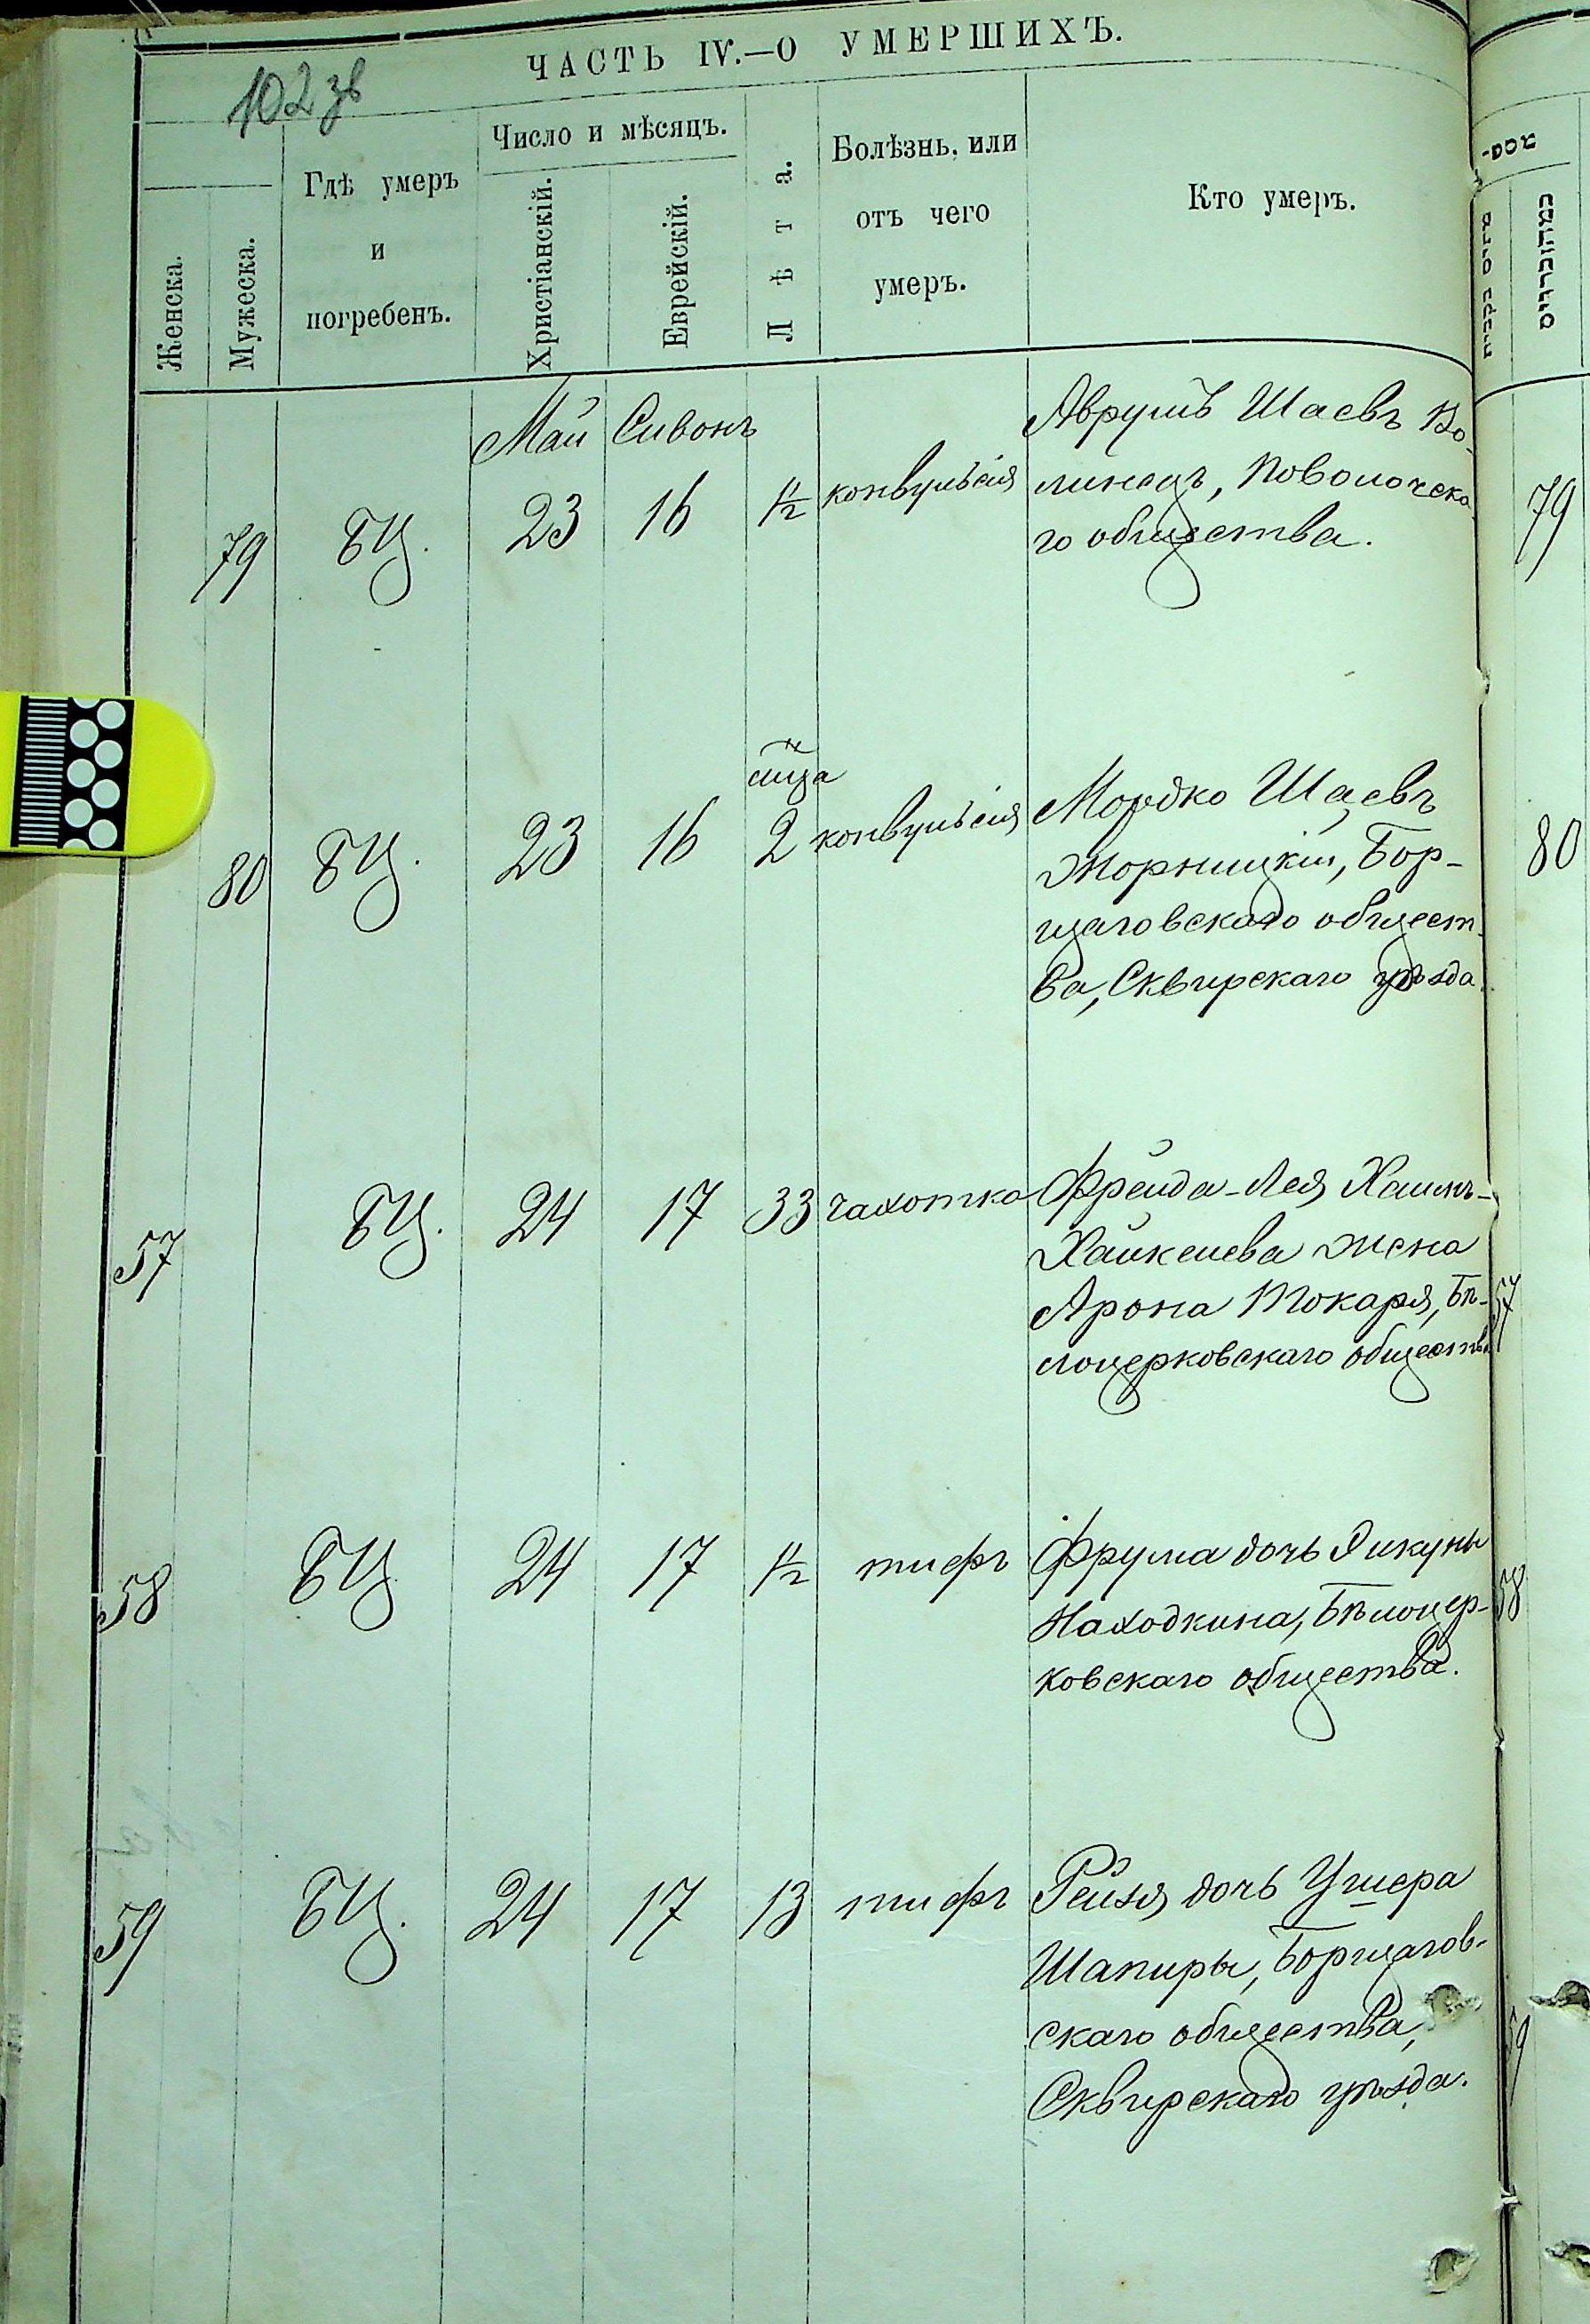 ЧАСТЬ IV.—О УМЕРШИХЪ.
102 зв
Женска.
Мужеска.
Гдѣ умеръ
и
погребенъ.
Число и мѣсяцъ.
Христіанскій.
Еврейскій.
Лѣта.
Болѣзнь, или
отъ чего
умеръ.
Кто умеръ.
Май Сивонъ
79 БЦ. 23 16 1½ конвульсія
Аврумъ Шаевъ Во-
линецъ, Поволочска-
го общества.
79
мѣца
80 БЦ. 23 16 2 конвульсія
Мордко Шаевъ
Жорницкій, Бор-
щаговскаго общест-
ва, Сквирскаго уѣзда.
80
57 БЦ. 24 17 33 чахотка
Фрейда-Лея Хаимъ-
Хайкелева жена
Арона Токаря, Бѣ-
лоцерковскаго общества
57
58 БЦ 24 17 1½ тифъ
Фрума дочь
Находкина, Бѣлоцер-
ковскаго общества.
58
59 БЦ. 24 17 13 тифъ
Рейзя дочь Ушера
Шапиры, Борщагов-
скаго общества,
Сквирскаго уѣзда.
59